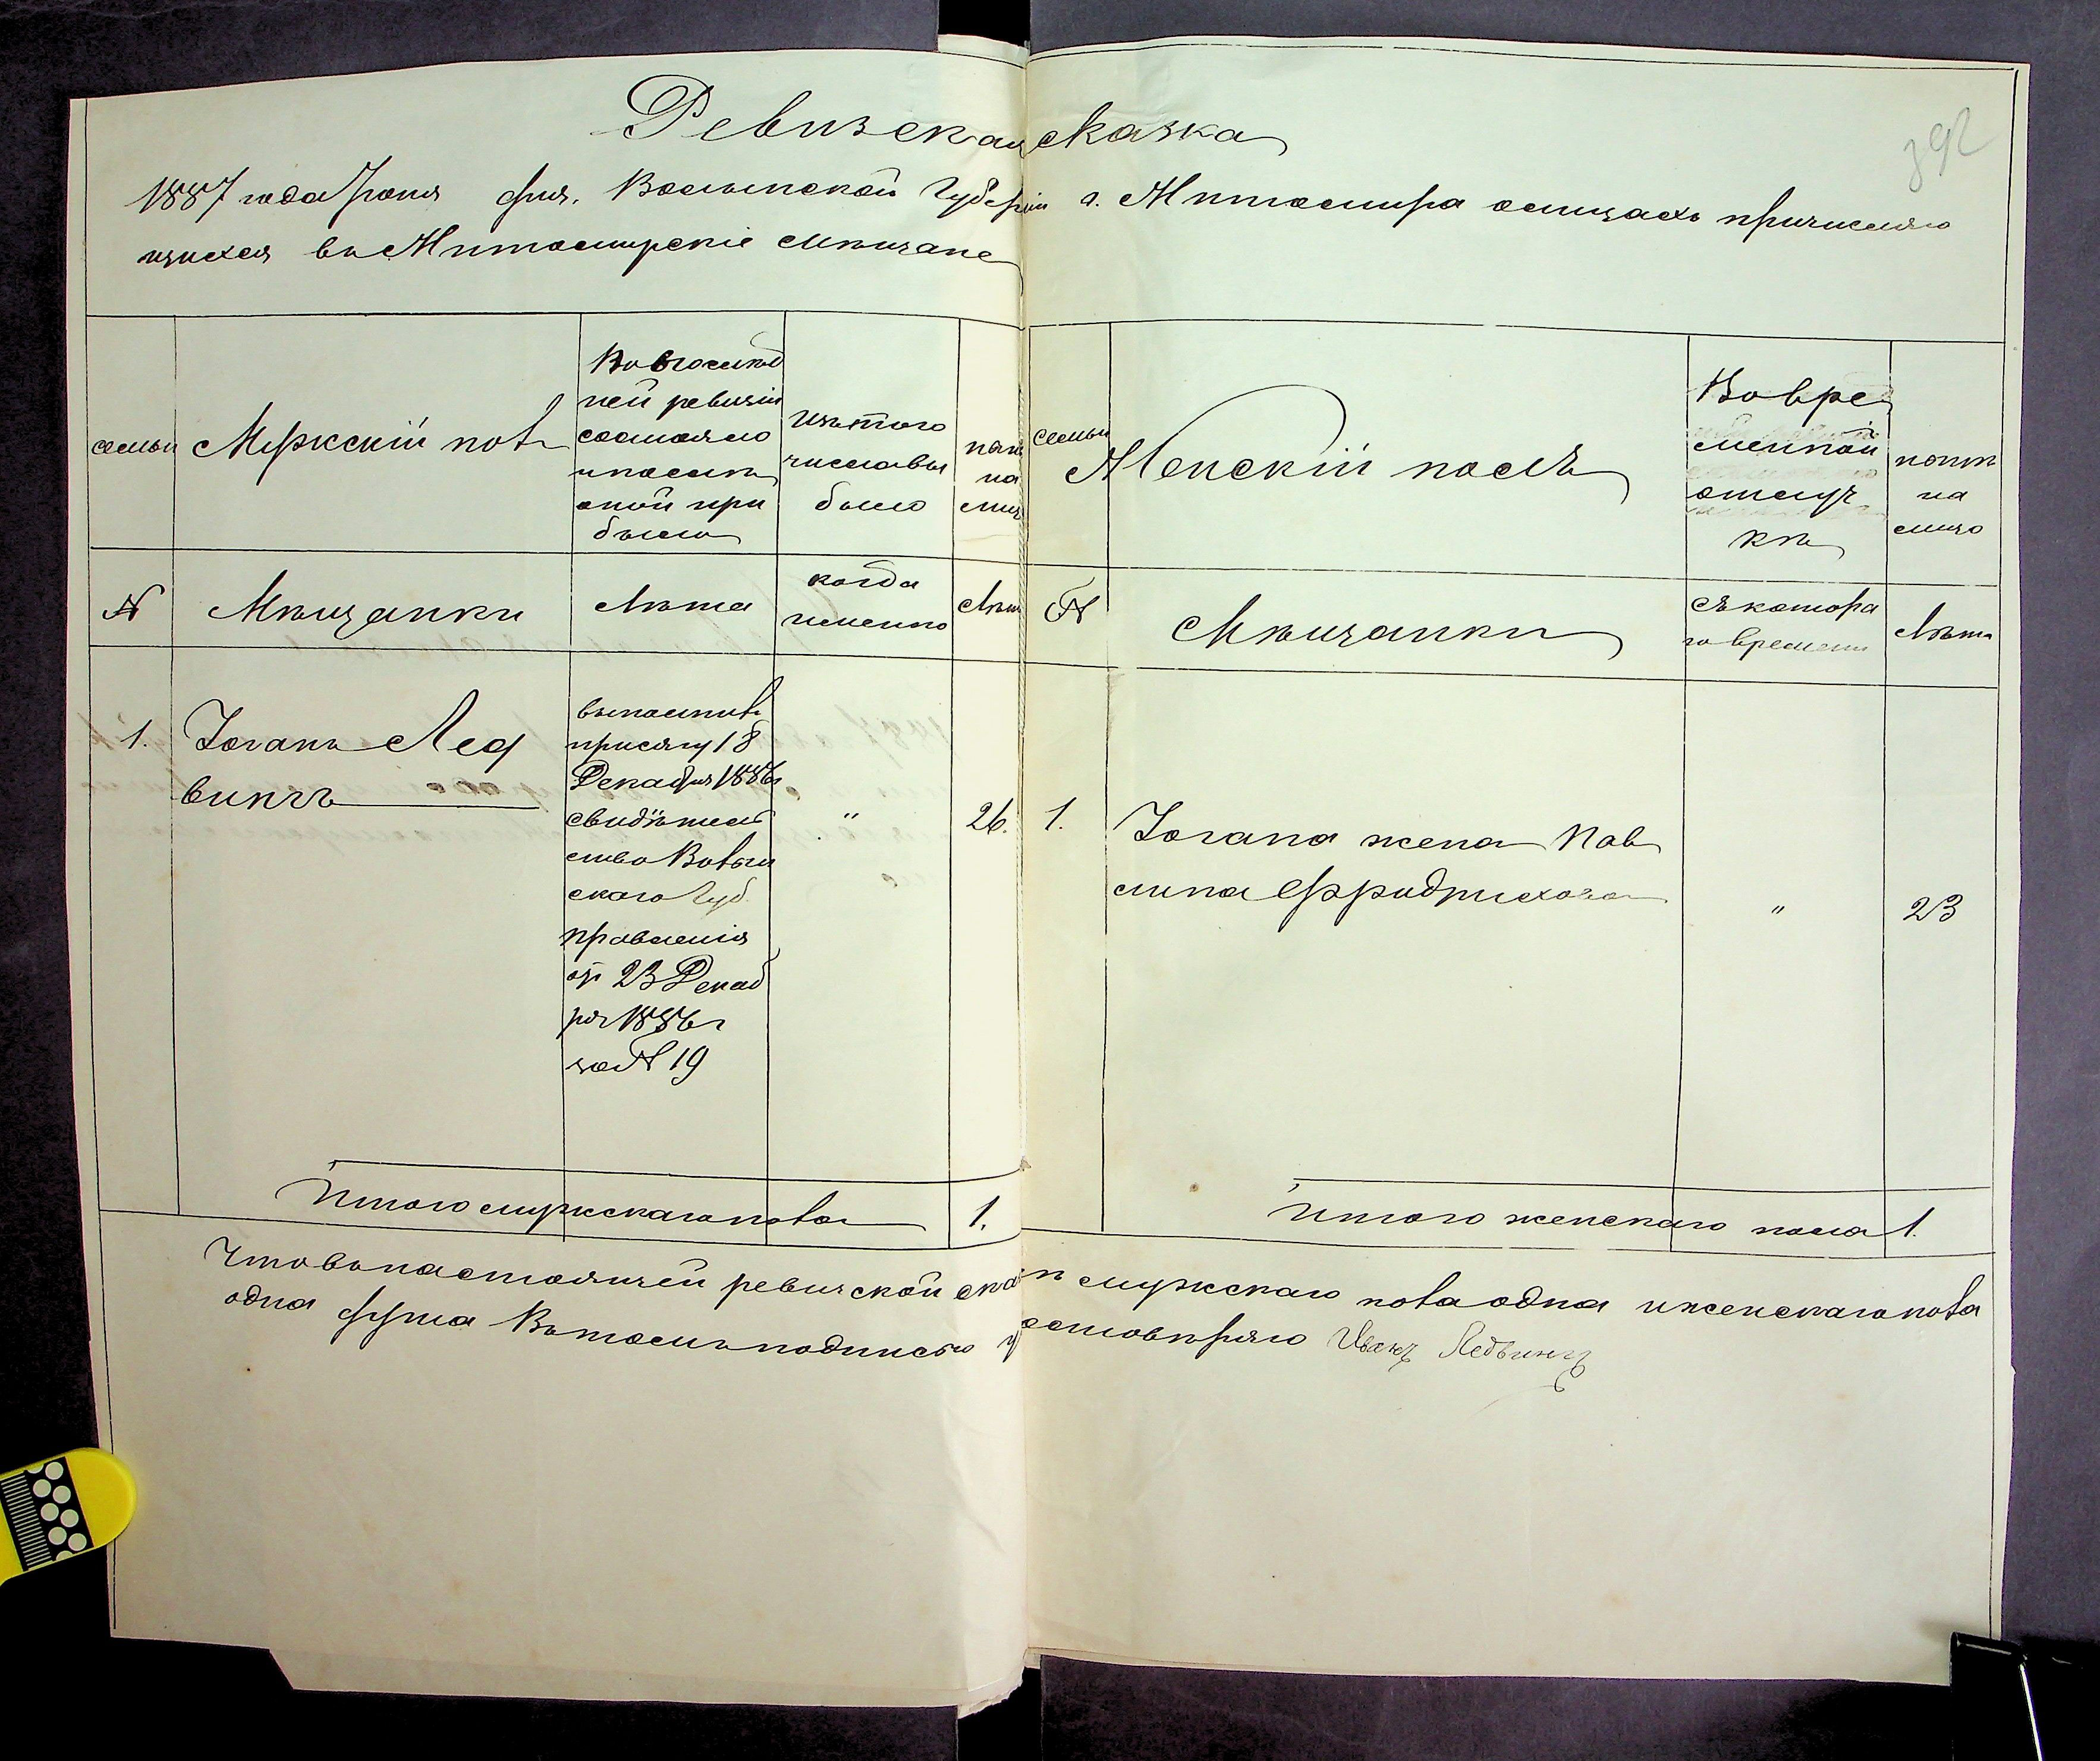 Ревизская сказка
392
1887 года Іюня дня. Волынской Губерніи г. Житомира о лицахъ причисляю
щихся въ Житомирскіе мѣщане
семьи
Мужскій полъ
Въ послѣд
ней ревизіи
состояло
и послѣ
оной при
было
Изъ того
числа вы
было
нынѣ
на
лиц
семьи
Женскій полъ
Во вре
менной
отлуч
кѣ
нынѣ
на
лицо
№
Мѣщанки
Лѣта
когда
именно
Лѣта
№
Мѣщанки
Съ котора
го времени
Лѣта
1.
Іоганъ Лед
вингъ
выполнив
присягу 18
Декабря 1886г
свидѣтель
ство Волын
скаго Губ.
Правленія
от 23 Декаб
ря 1886 г
за № 19
"
26.
1.
Іогана жена Пав
лина Фридрихова
"
23
Итого мужскаго пола
1.
Итого женскаго пола
1.
Что въ настоящей ревизской сказкѣ мужскаго пола одна и женскаго пола
одна душа Въ томъ и подписью удостовѣряю Иванъ Ледвингъ